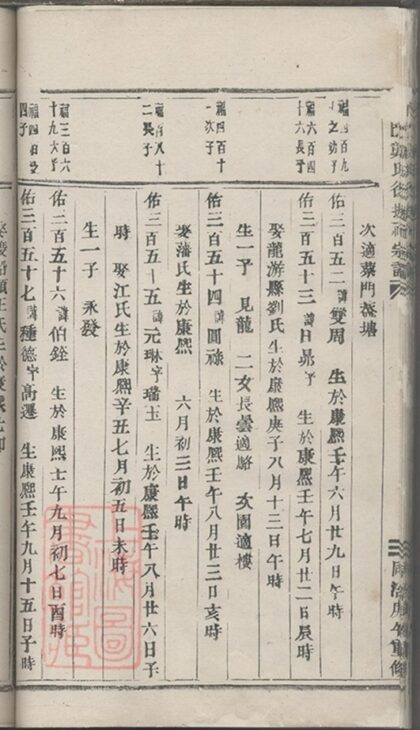 次適蔡門
福四百九十之幼子
佑三百五二諱雙周 生於康熙壬午六月廿九日午時
福六百四十六長子
佑三百五十三諱日昇 生於康熙壬午七月廿二日辰時
娶龍游縣劉氏生於康熙庚子八月十三日午時
生一子 見龍 二女長曇適 次園適樓
福四百十一次子
佑三百五十四諱圓祿 生於康熙壬午八月廿三日亥時
娶潘氏生於康熙 六月初三日午時
二長子
佑三百五十五諱元琳字璠玉 生於康熙壬午八月廿六日子
時 娶江氏生於康熙辛丑七月初五日未時
生一子 永發
福三百六十九
佑三百五十六諱伯銓 生於康熙壬午九月初七日酉時
四子
佑三百五十七諱種德字高遷 生康熙壬午九月十五日子時
同治庚午重修